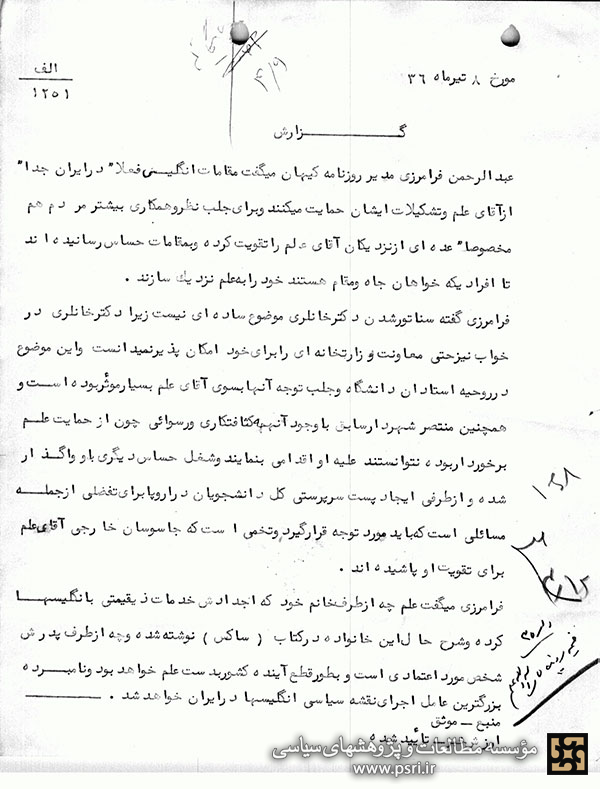 الف
۱۲۵۱
مورخ ۸ تیرماه ۳۶
گـــــــــزارش
عبدالرحمن فرامرزی مدیر روزنامه کیهان میگفت مقامات انگلیسی فعلا" درایران جدا"
ازآقای علم وتشکیلات ایشان حمایت میکنند وبرای جلب نظروهمکاری بیشتر مردم هم
مخصوصا" عده ای ازنزدیکان آقای علم راتقویت کرده وبمقامات حساس رسانیده اند
تا افرادیکه خواهان جاه ومقام هستند خود رابه علم نزدیك سازند .
فرامرزی گفته سناتورشدن دکترخانلری موضوع ساده ای نیست زیرا دکترخانلری در
خواب نیزحتی معاونت وزارتخانه ای رابرای خود امکان پذیرنمیدانست واین موضوع
درروحیه استادان دانشگاه وجلب توجه آنها بسوی آقای علم بسیارموثربوده است و
همچنین منتصر شهردارسابق باوجود آنهمه کثافتکاری ورسوائی چون از حمایت علم
برخورداربوده نتوانستند علیه او اقدامی بنمایند وشغل حساس دیگری باو واگذار
شده وازطرفی ایجاد پست سرپرستی کل دانشجویان دراروپا برای تفضلی ازجمله
مسائلی است که باید مورد توجه قرارگیرد وتخمی است که جاسوسان خارجی آقای علم
برای تقویت او پاشیده اند .
فرامرزی میگفت علم چه ازطرف خانم خود که اجدادش خدمات ذیقیمتی بانگلیسها
کرده وشرح حال این خانواده درکتاب (ساکس) نوشته شده وچه ازطرف پدرش
شخص مورد اعتمادی است و بطورقطع آینده کشوربدست علم خواهد بود ونامبرده
بزرگترین عامل اجرای نقشه سیاسی انگلیسها درایران خواهد شد .
منبع ــ موثق
ارزش خبر ــ تأیید شده
مؤسسه مطالعات و پژوهشهای سیاسی
www.psri.ir